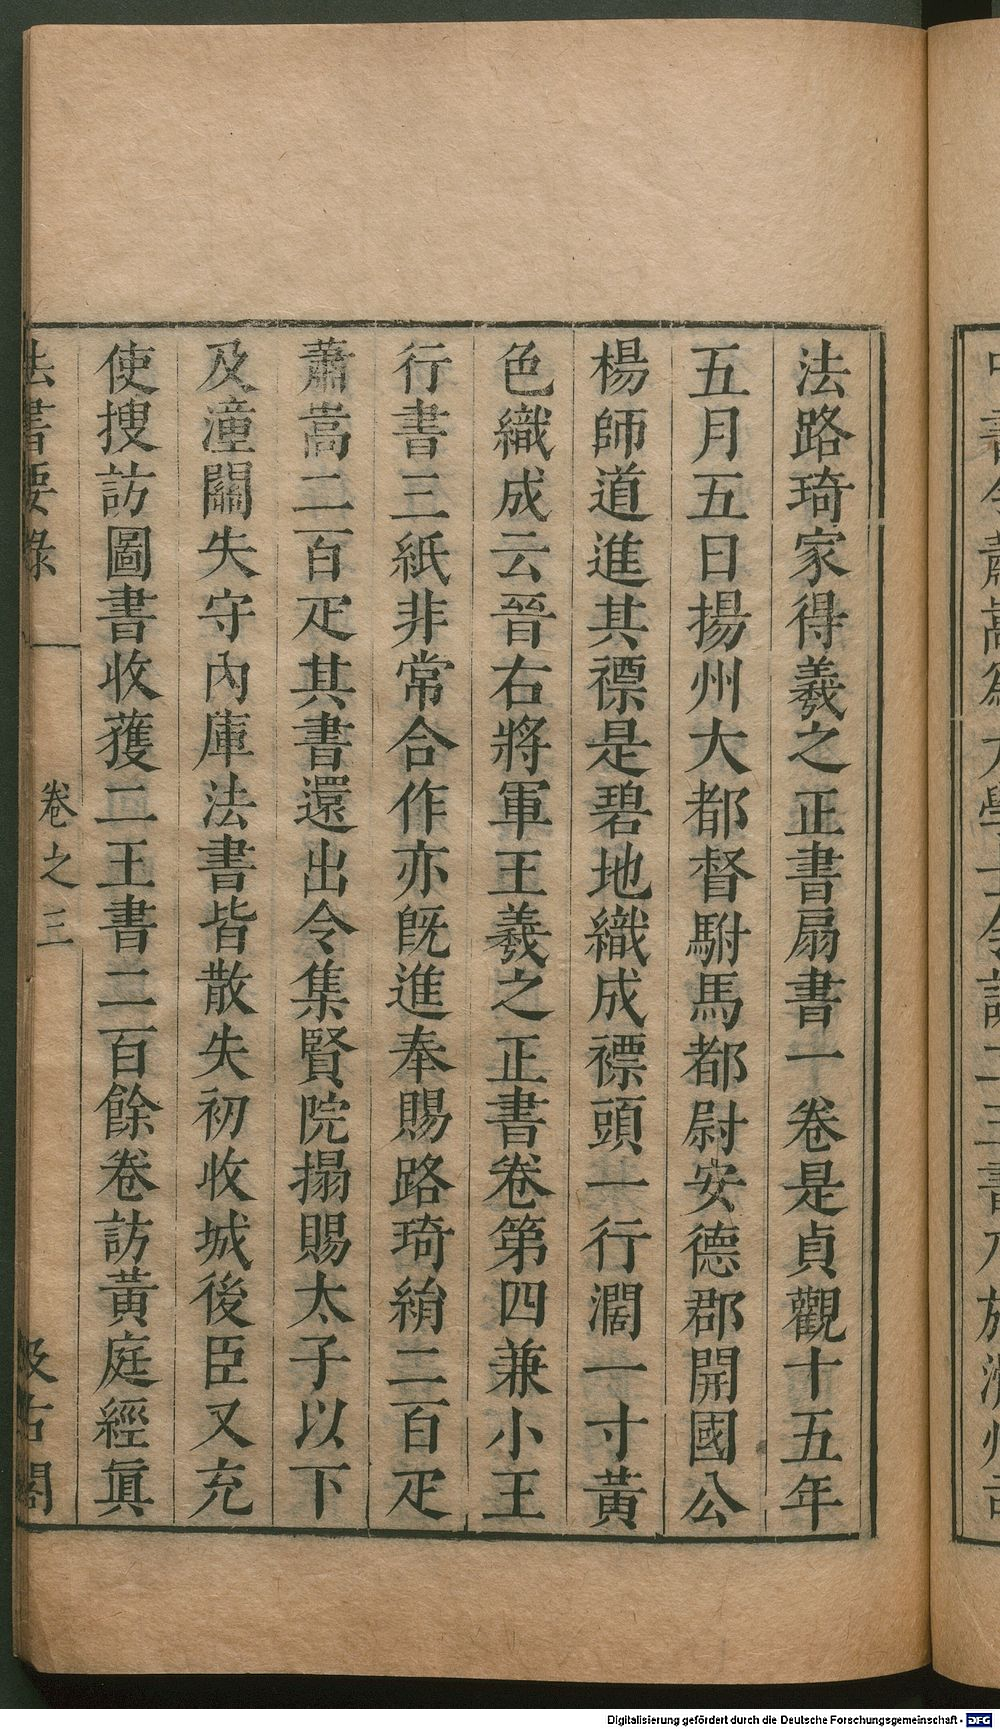 法路琦家得羲之正書扇書一卷是貞觀十五年
五月五日揚州大都督駙馬都尉安德郡開國公
楊師道進其褾是碧地織成褾頭一行濶一寸黃
色織成云晉右將軍王羲之正書卷第四兼小王
行書三紙非常合作亦旣進奉賜路琦絹二百疋
蕭嵩二百疋其書還出令集賢院搨賜太子以下
及潼關失守內庫法書皆散失初收城後臣又充
使搜訪圖書收獲二王書二百餘卷訪黃庭經眞
法書要錄
卷之三
汲古閣
Digitalisierung gefördert durch die Deutsche Forschungsgemeinschaft - DFG